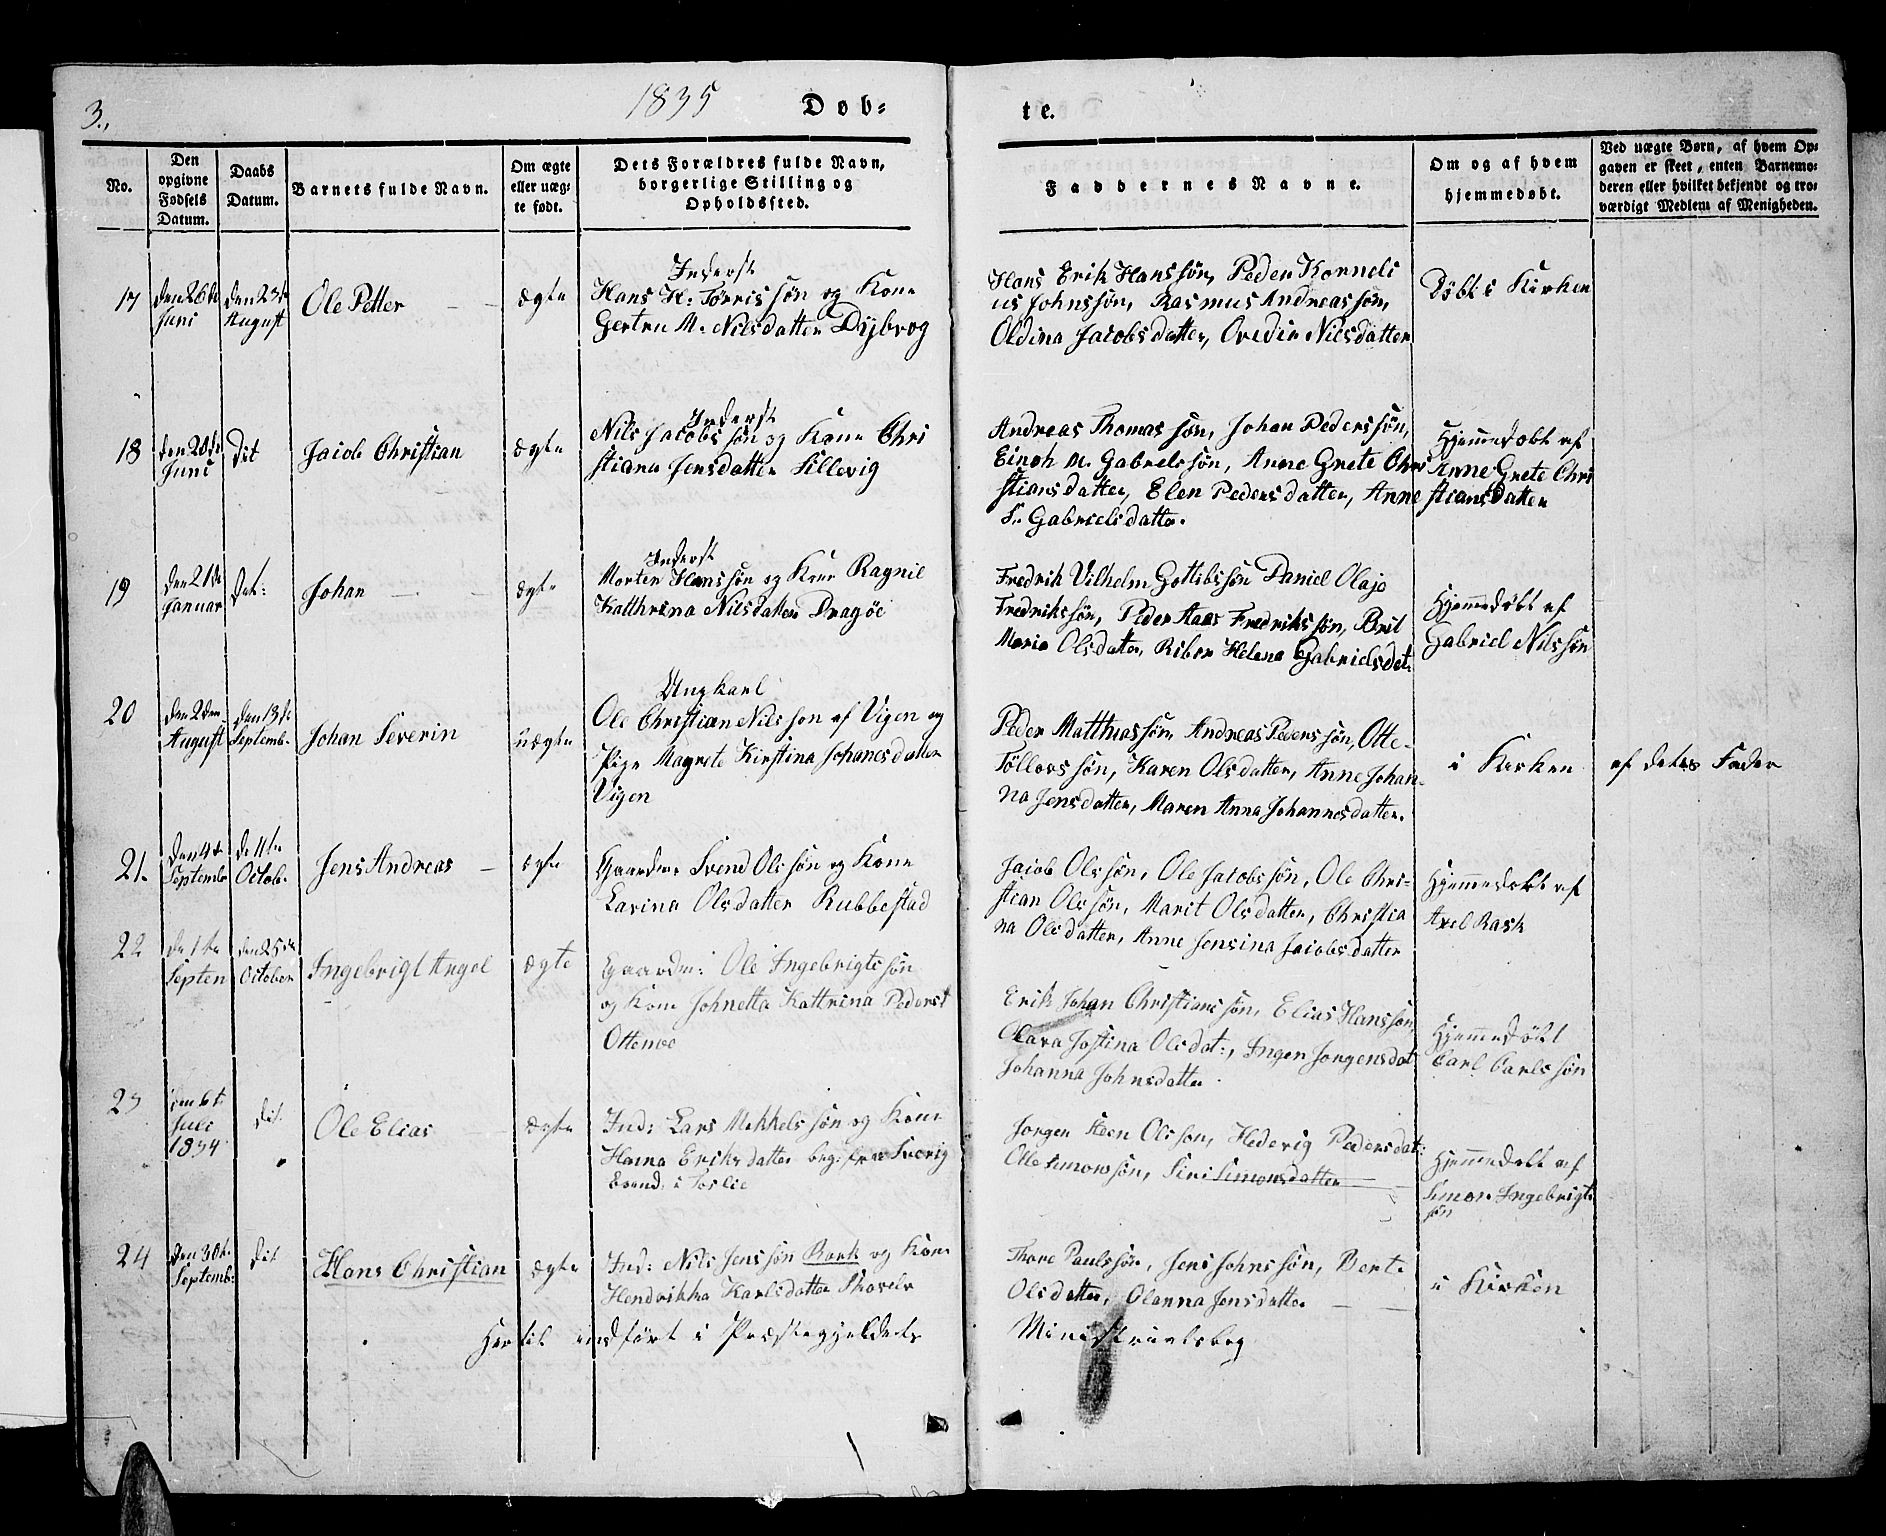 3.,
1835
Døb=
te.
No.
Den opgivne Fødsels Datum.
Daabs Datum.
Barnets fulde Navn.
Om ægte eller uæg= te født.
Dets Forældres fulde Navn, borgerlige Stilling og Opholdssted.
Faddernes Navne.
Om og af hvem hjemmedøbt.
Ved uægte Børn, af hvem Op= gaven er skeet, enten Barnemo= deren eller hvilket bekjendt og tro= værdigt Medlem af Menigheden.
17
den 26de
Juni
den 23de
August
Ole Petter
ægte
Inderst
Hans H: Tørrissøn og Kone
Gertru M. Nilsdatter Dybvog
Hans Erik Hanssøn, Peder Korneli
us Johnssøn, Rasmus Andreassøn,
Oldina Jacobsdatter, Ovedie Nilsdatter
Døbt i Kirken
18
den 20de
Juni
Dit
Jacob Christian
ægte
Inderst
Nils Jacobssøn og Kone Chri
stiana Jensdatter Lillevig
Andreas Thomassøn, Johan Pederssøn,
Einoh M. Gabrielssøn, Anne Grete Chri
stiansdatter, Elen Pedersdatter, Anne
S. Gabrielsdatter.
Hjemmedøbt af
Anne Grete Chri
stiansdatter
19
den 21de
Januar
Det:
Johan
ægte
Inderst
Morten Hanssøn og Kone Ragnil
Katthrina Nilsdatter Dragöe
Fredrik Vilhelm Gottlibssøn Daniel Olajo
Fredrikssøn, Peder Aas Fredrikssøn, Brit
Maria Olsdatter, Riber Helena Gabrielsdat:
Hjemmedøbt af
Gabriel Nilssøn
20
den 2den
August
den 13de
Septemb.
Johan Severin
uægte
Ungkarl
Ole Christian Nilsson af Vigen og
Pige Magrete Kirstina Johanesdatter
Vigen
Peder Matthiassøn, Andreas Pederssøn, Otte
Tøllevssøn, Karen Olsdatter, Anne Johan-
na Jensdatter, Maren Anna Johannesdatter.
i Kirken
af dets Fader
21.
den 4de
Septembr
de 11te
Octob.
Jens Andreas
ægte
Gaardm. Svend Olssøn og Kone
Larina Olsdatter Rubbestad
Jacob Olssøn, Ole Jacobssøn, Ole Chri-
stian Olssøn, Marit Olsdatter, Christia
na Olsdatter, Anne Jensina Jacobsdatter
Hjemmedøbt af
Axel Rask
22
de 1te
Septem
den 25de
October
Ingebrigt Angel
ægte
Gaardm: Ole Ingebrigtssøn
og Kone Johnetta Kattrina Pedersd
Ottenoe
Erik Johan Christianssøn, Elias Hanssøn,
Olava Jostina Olsdat:, Inger Jørgensdat
Johanna Johnsdatter.
Hjemmedøbt
Carl Carlssøn
23
den 6t
Juli
1834
Dit
Ole Elias
ægte
Ind: Lars Mekkelssøn og Kone
Hanna Eriksdatter beg: fra Sverig
Evend. i Toslie
Jørgen Steen Olsson, Hedevig Pedersdat:
Otte Simonssøn, Siri Simonsdatter
Hjemmedøbt af
Simon Ingebrigt
søn
24
den 30t.
Septemb:
Dit
Hans Christian
ægte
Ind: Nils Jenssøn Bark og Kone
Hendrikka Karlsdatter Skovelv
Thore Paulssøn, Jens Johnssøn, Berte
Olsdatter, Olanna Jensdatter
i Kirken
Hertil indført i Præstegjeldets
Ministerialsbog